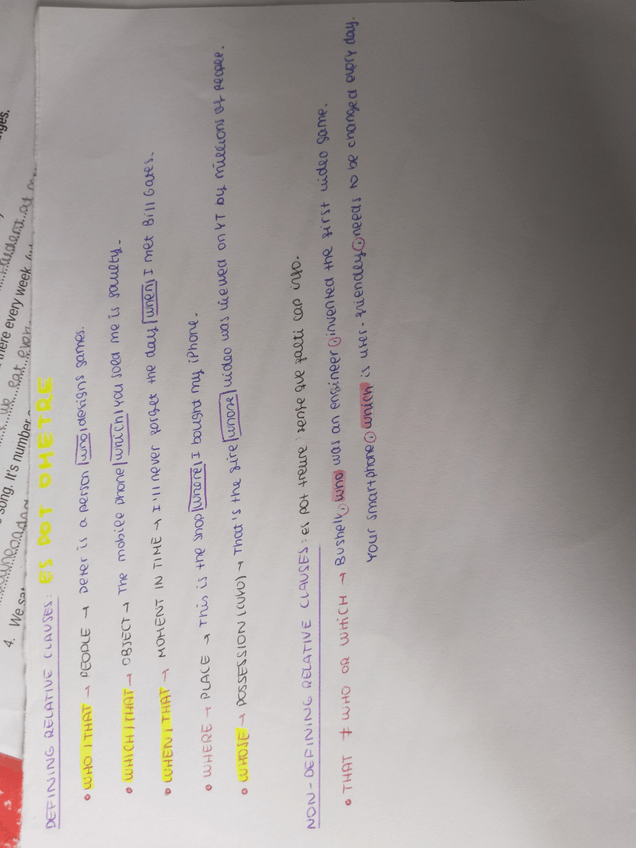 DEFINING RELATIVE CLAUSES: ES POT OMETRE
• WHO / THAT → PEOPLE → Peter is a person who designs games.
• WHICH / THAT → OBJECT → The mobile phone which you sold me is faulty.
• WHEN / THAT → MOMENT IN TIME → I'll never forget the day when I met Bill Gates.
• WHERE → PLACE → This is the shop where I bought my iPhone.
• WHOSE → POSSESSION (WHO) → That's the girl whose video was viewed on YT by millions of people.
NON-DEFINING RELATIVE CLAUSES: es pot treure: sense que falti cap info.
• THAT ≠ WHO OR WHICH → Bushell, who was an engineer, invented the first video game.
Your smartphone, which is user-friendly, needs to be changed every day.
4. We
song. It's number
there every week
nges.